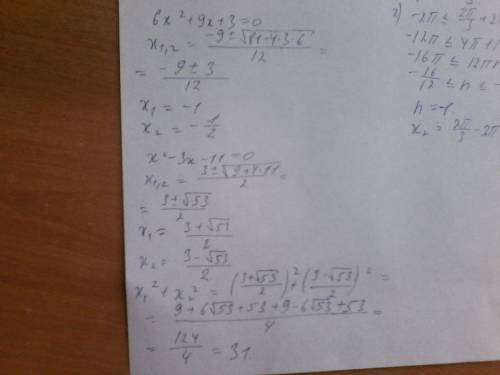 6x²+9x+3=0
x₁,₂ = (-9±√(81-4·3·6))/12 =
= (-9±3)/12
x₁ = -1
x₂ = -1/2
x²-3x-11=0
x₁,₂ = (3±√(9+4·11))/2 =
= (3±√53)/2
x₁ = (3+√53)/2
x₂ = (3-√53)/2
x₁²+x₂² = ((3+√53)/2)²+((3-√53)/2)² =
= (9+6√53+53+9-6√53+53)/4 =
= 124/4 = 31.
2) -2π ≤ 2π/3 + 2
-12π ≤ 4π+1
-16π ≤ 12πn
-16/12 ≤ n ≤ -
n=-1
x₂ = 2π/3 - 2π